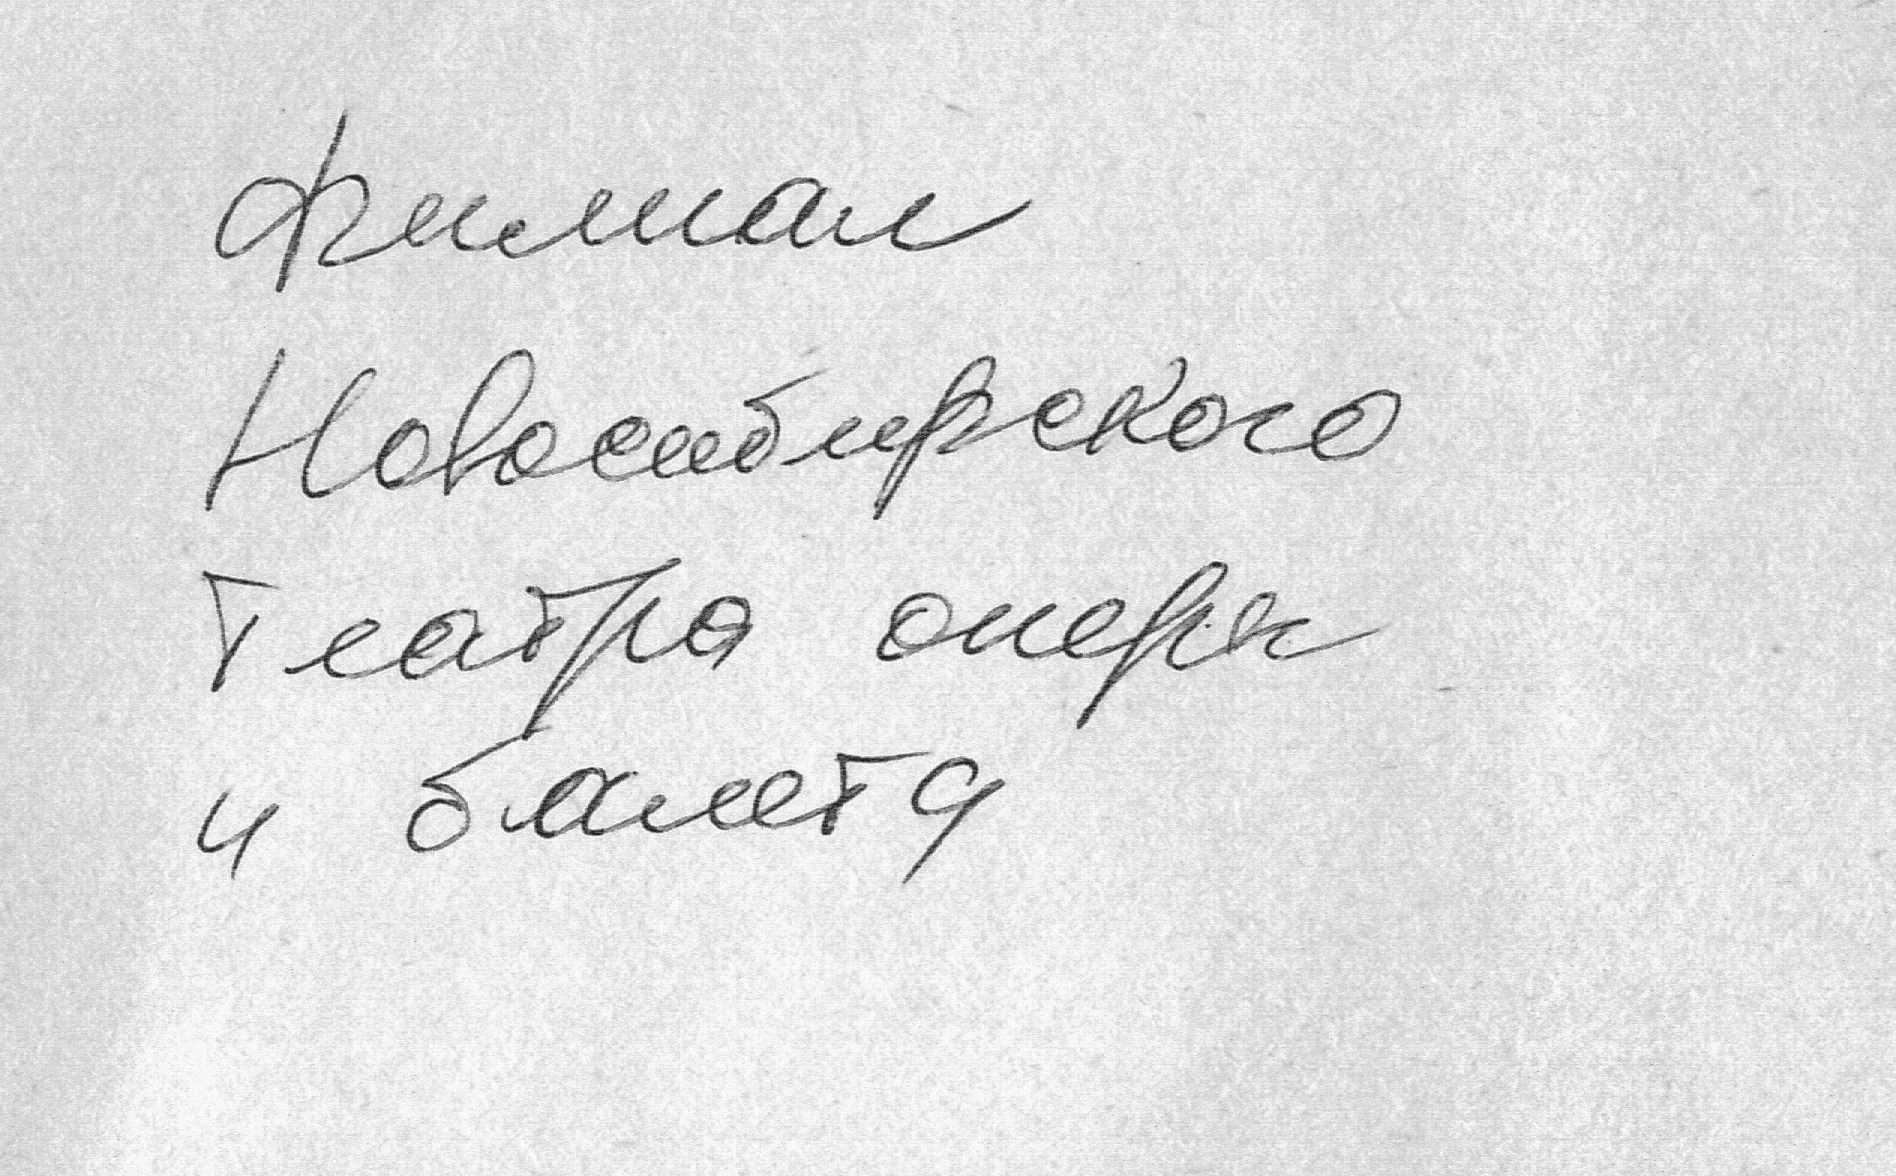 Филиал
Новосибирского
театра оперы
и балета